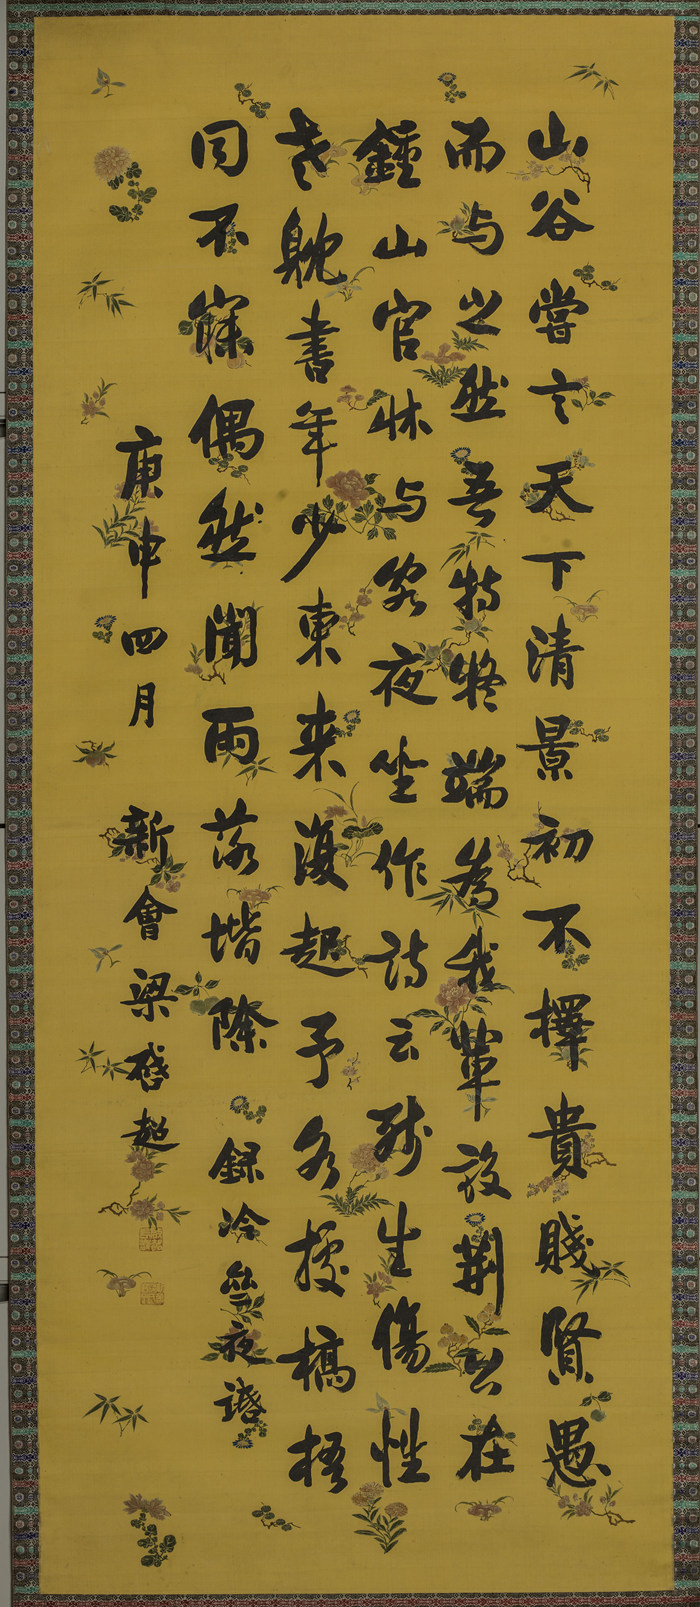 山谷嘗言天下清景初不擇貴賤賢愚
而与之然吾特疑端為我輩設荊公在
鍾山官休与客夜坐作詩云殘生傷性
老躭書年少東来復起予各據槁梧
同不寐偶然聞雨落堦除 録冷齋夜話
庚申四月 新會梁啓超